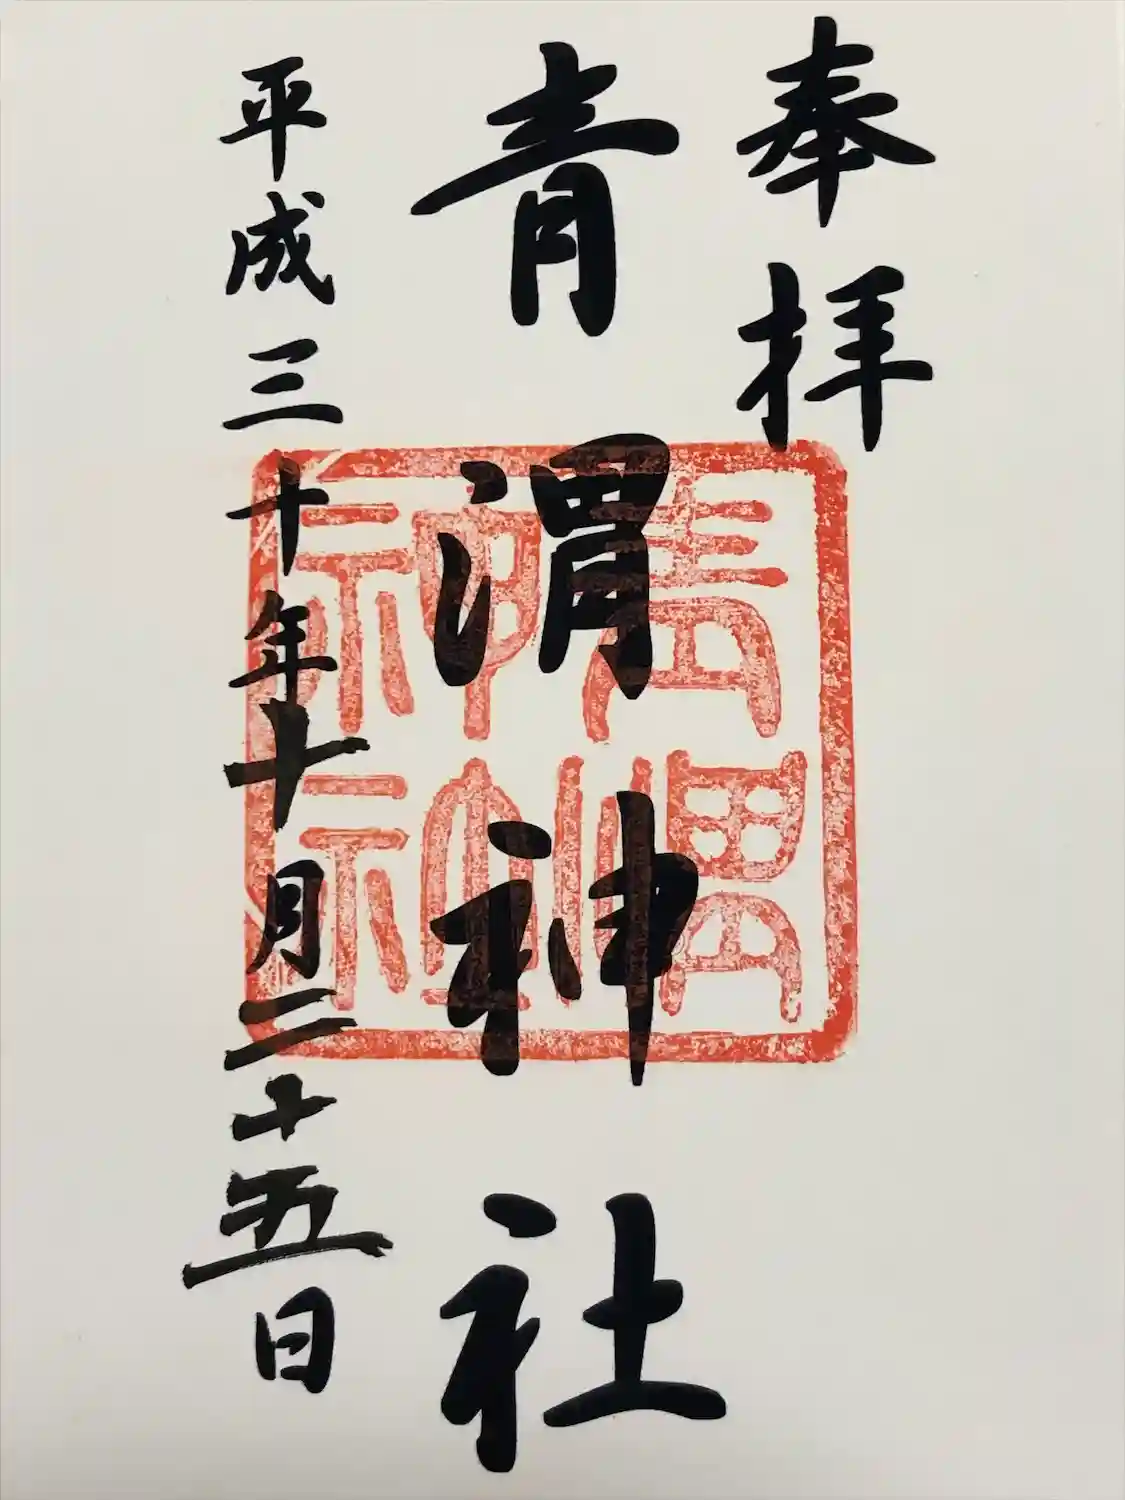 奉拝
青渭神社
青渭神社
平成三十年十月二十五日